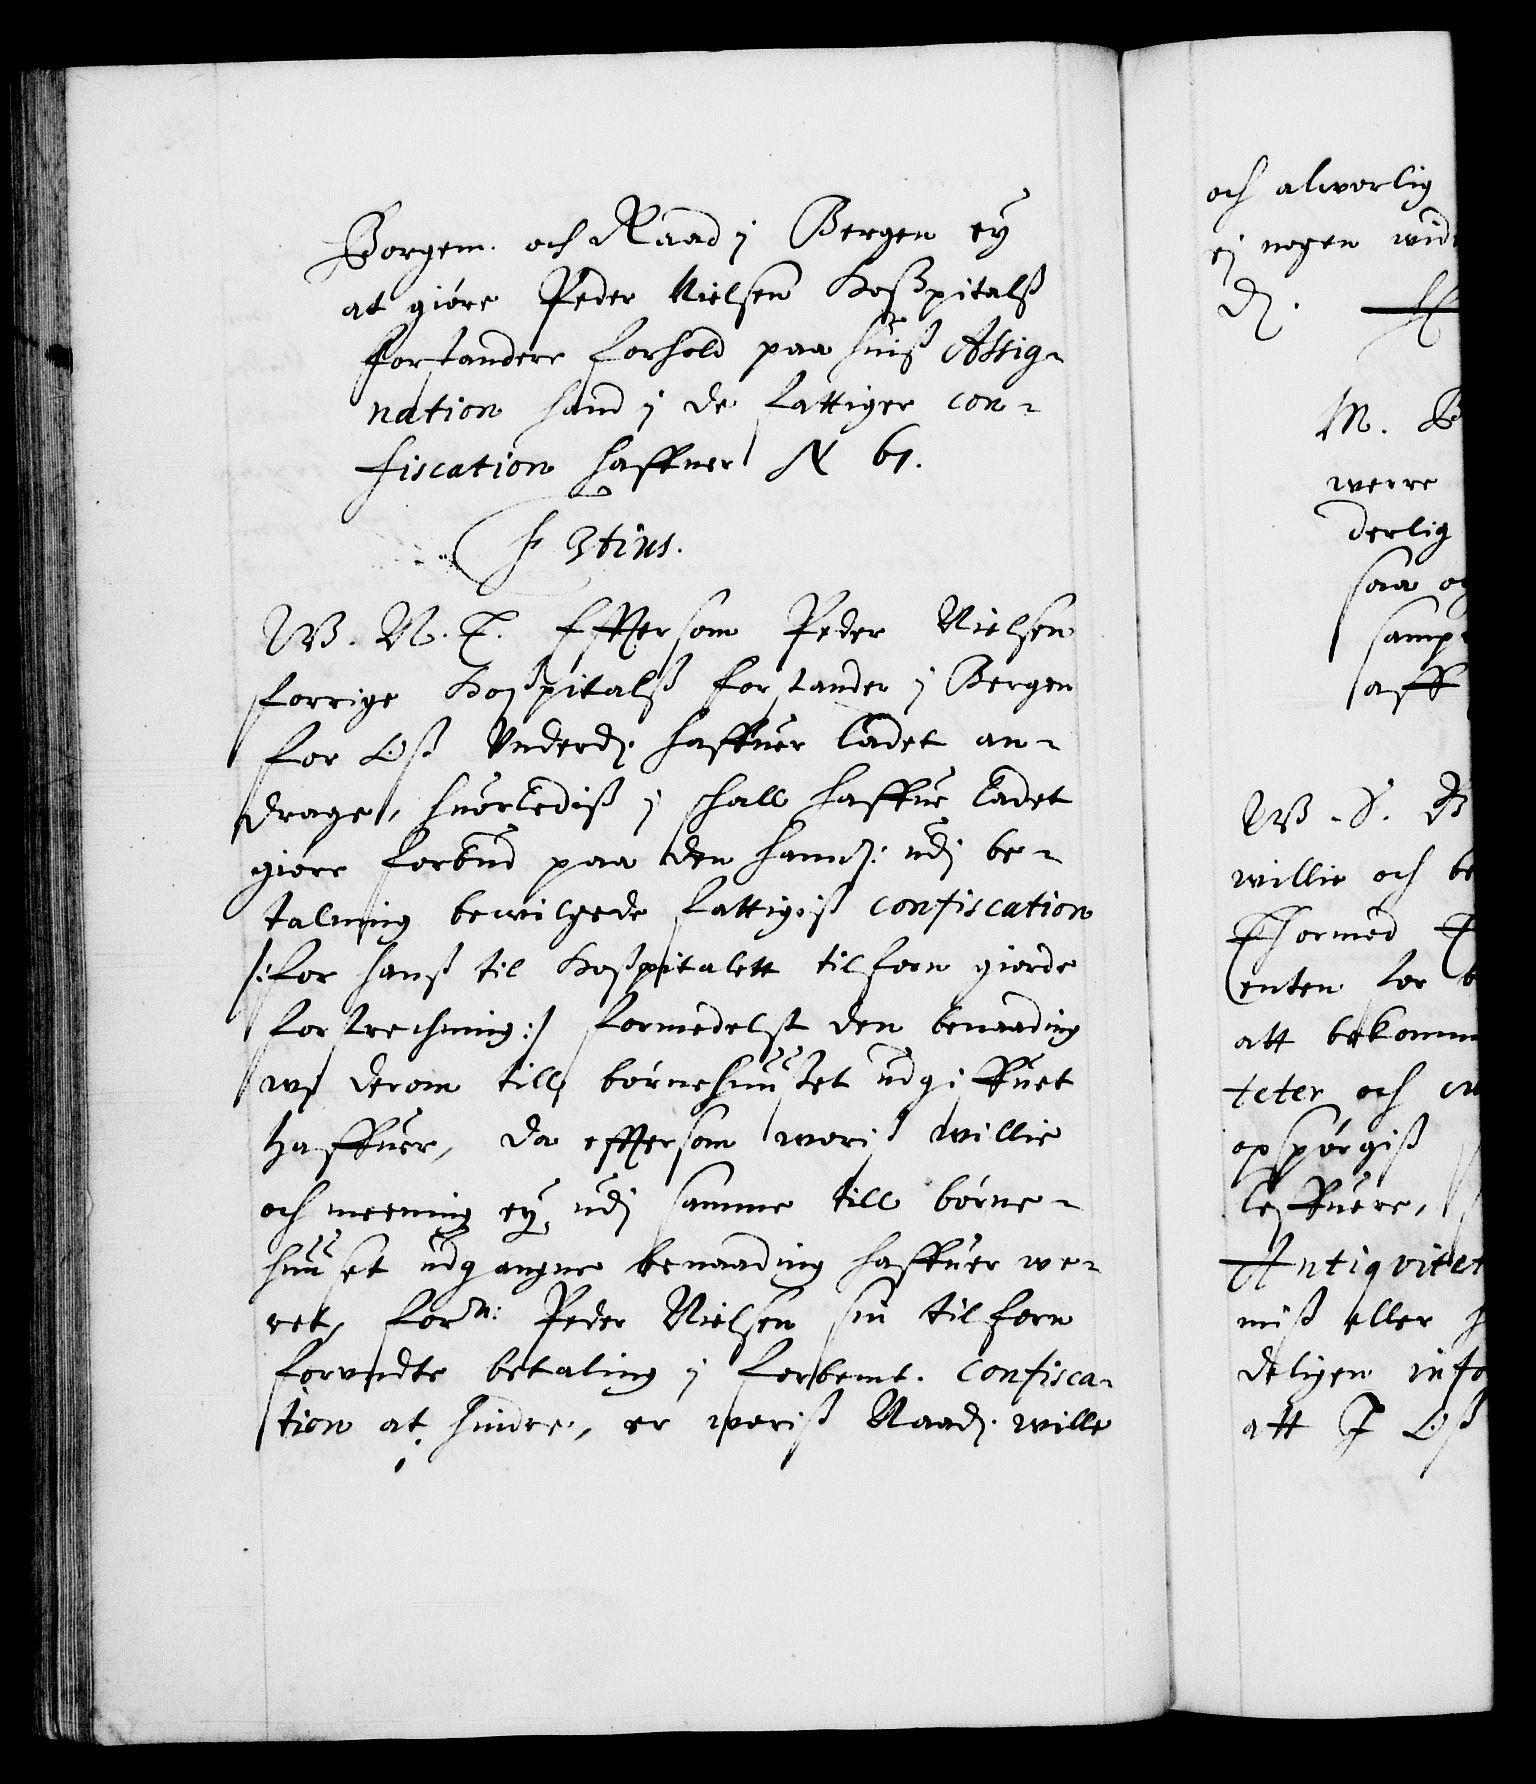 Borgem. och Raad j Bergen ey
at giøre Peder Nielsen Hoszpitalsz
forstandere forhold paa huisz Assig-
nation hand j de fattiger con-
fiscation haffuer N 61.
Fr 3tius.
W. N. T. Effter som Peder Nielsen
forrige Hoszpitalsz forstander j Bergen
for Osz Underd. haffuer ladet an-
drage, huorledisz j schall haffue ladet
giøre forbud paa den ham: udj be-
talning bewilgede fattigisz confiscation
/: for hansz til Hoszpitalett tilforn giorde
forstrechning :/ formedelst den benaading
wj derom till børnehuuset udgiffuet
haffuer, da effter som woris willie
och meening ey udj samme till børne-
huuset udgangne benaading haffuer we-
ret, forn: Peder Nielsen sin tilforn
forundte betaling j forbemt. confisca-
tion at hindre, er worisz Naad. wille
och alworlig
ej nogen wid
D.
M. B
werre
derlig
saa og
samp
aff
W. S. B
willie och be
Thormod T
enten for
att bekomm
teter och
opspørgisz
leffuere,
Antiqvitet
misz eller
deligen info
att J Osz